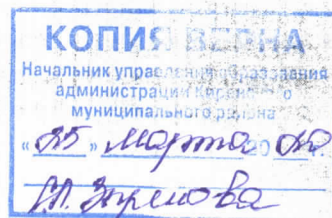 КОПИЯ ВЕРНА
Начальник управления образования
администрации
муниципального района
«25» марта 20